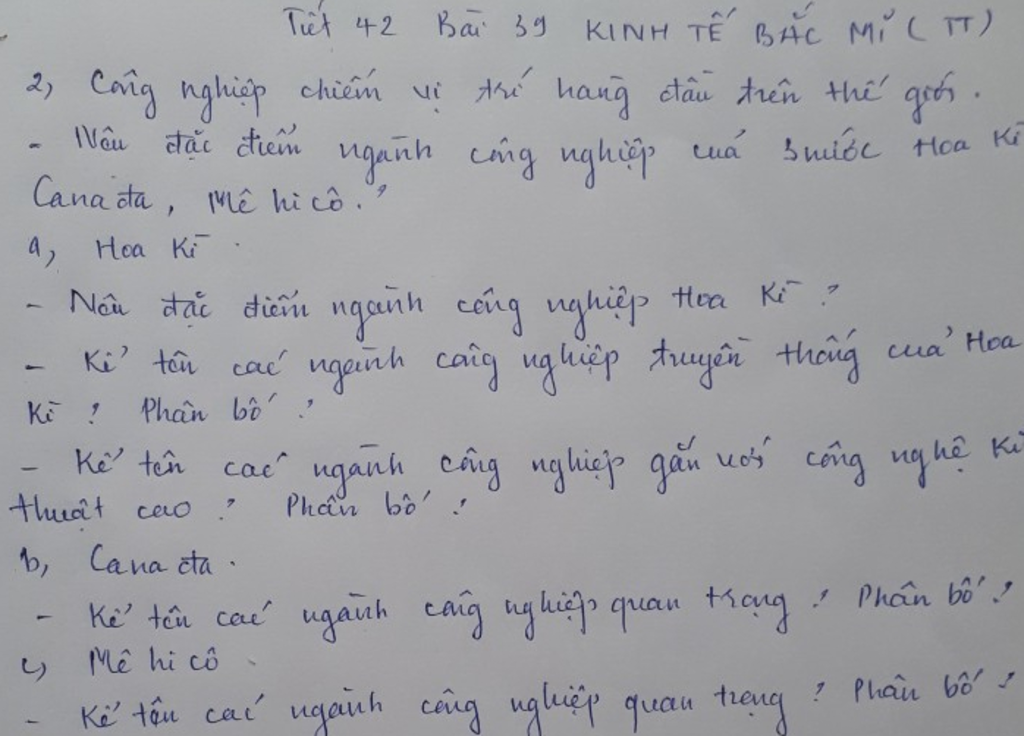 Tiết 42 Bài 39 KINH TẾ BẮC MĨ ( TT )
2, Công nghiệp chiếm vị trí hàng đầu trên thế giới.
- Nêu đặc điểm ngành công nghiệp của 3 nước Hoa Kì
Cana đa, Mê hi cô. ?
a, Hoa Kì.
- Nêu đặc điểm ngành công nghiệp Hoa Kì ?
- Kể tên các ngành công nghiệp truyền thống của Hoa
Kì ? Phân bố ?
- Kể tên các ngành công nghiệp gắn với công nghệ Kĩ
thuật cao ? Phân bố ?
b, Cana đa.
- Kể tên các ngành công nghiệp quan trọng ? Phân bố ?
c, Mê hi cô
- Kể tên các ngành công nghiệp quan trọng ? Phân bố ?